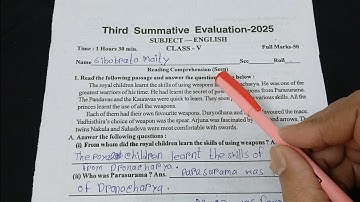 Third Summative Evaluation-2025
SUBJECT—ENGLISH
Time : 1 Hours 30 min. CLASS - V Full Marks-50
Name Sibabrata Maity Sec Roll
Reading Comprehension (Seen)
1. Read the following passage and answer the questions below :
The royal children learnt the skills of using weapons. He was one of the
greatest warriors of his time. He had learnt the secret of powerful weapons from Parasurama.
The Pandavas and the Kauravas were quick to learn. They soon various skills. All the
princes learnt the use of
Each of them had their own favourite weapons. Duryodhana and the mace.
Yudhisthira's choice of weapon was the spear. Arjuna was fascinated by and arrows. The
twins Nakula and Sahadeva were
A. Answer the following questions :
(i) From whom did the royal children learnt the skills of using weapons ?
The royal children learnt the skills of
from Dronacharya. Parasurama was
(ii) Who was Parasurama ? Ans.
of Dronacharya.